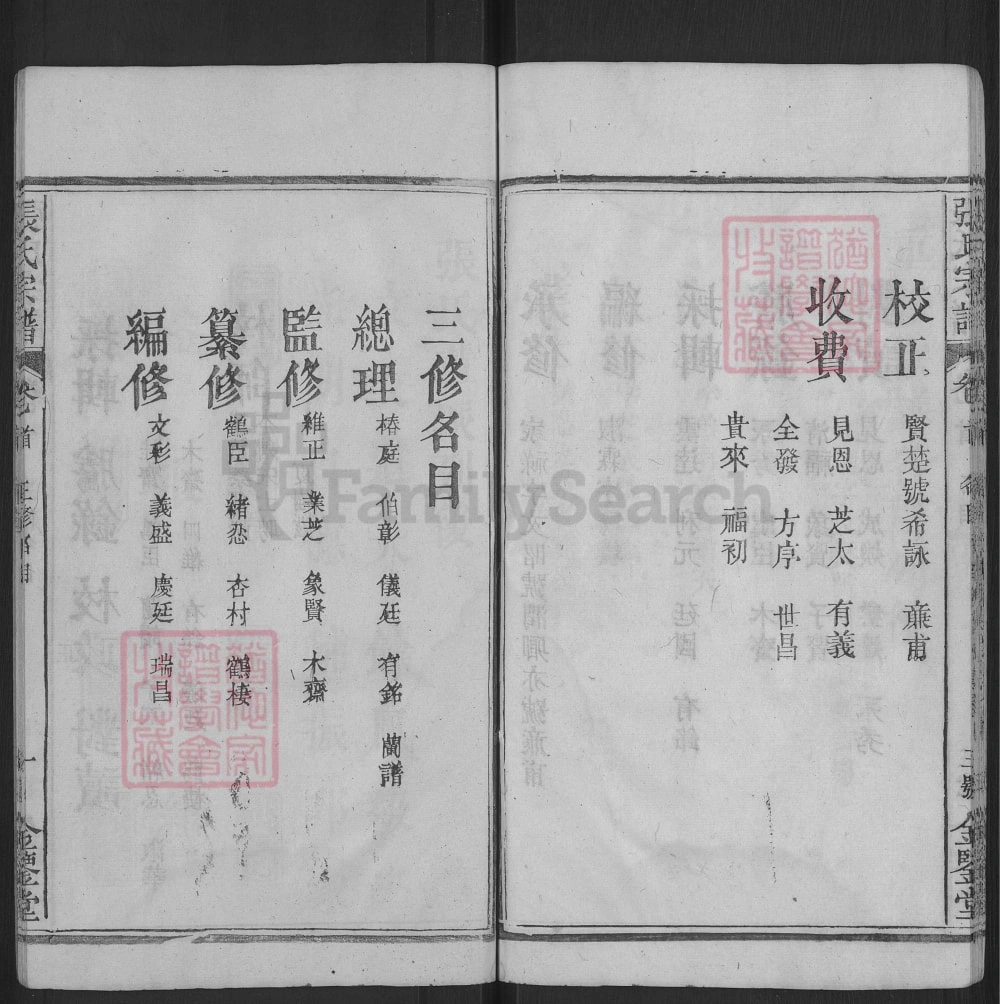 張氏宗譜
卷首
三號
金鑒堂
校正
賢楚號希詠 亷甫
收費
見恩 芝太 有義
全發 方序 世昌
貴來 福初
三修名目
總理
椿庭 伯彰 儀廷 有銘 蘭譜
監修
維正 業芝 象賢 木齋
纂修
鶴臣 緒忩 杏村 鶴棲
編修
文彩 義盛 慶延 瑞昌
張氏宗譜
卷首
三修名目
一
金鑒堂
FamilySearch